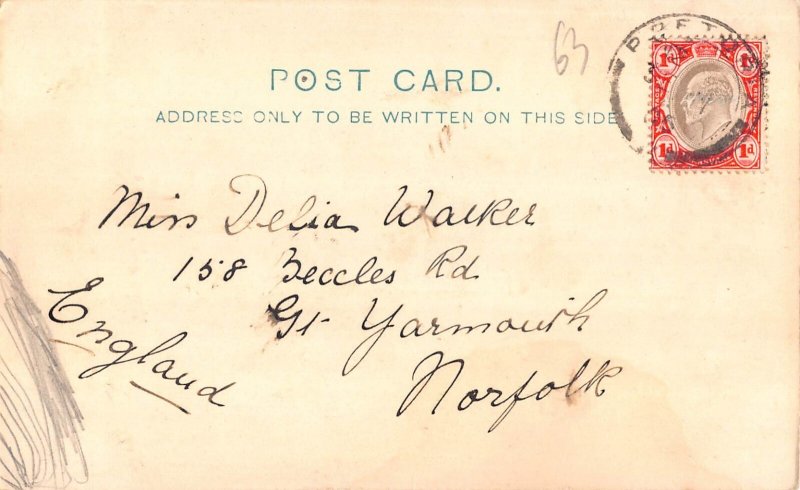 63
POST CARD.
ADDRESS ONLY TO BE WRITTEN ON THIS SIDE
1d 1d
1d 1d
Miss Delia Walker
158 Beccles Rd
Gt Yarmouth
Norfolk
England